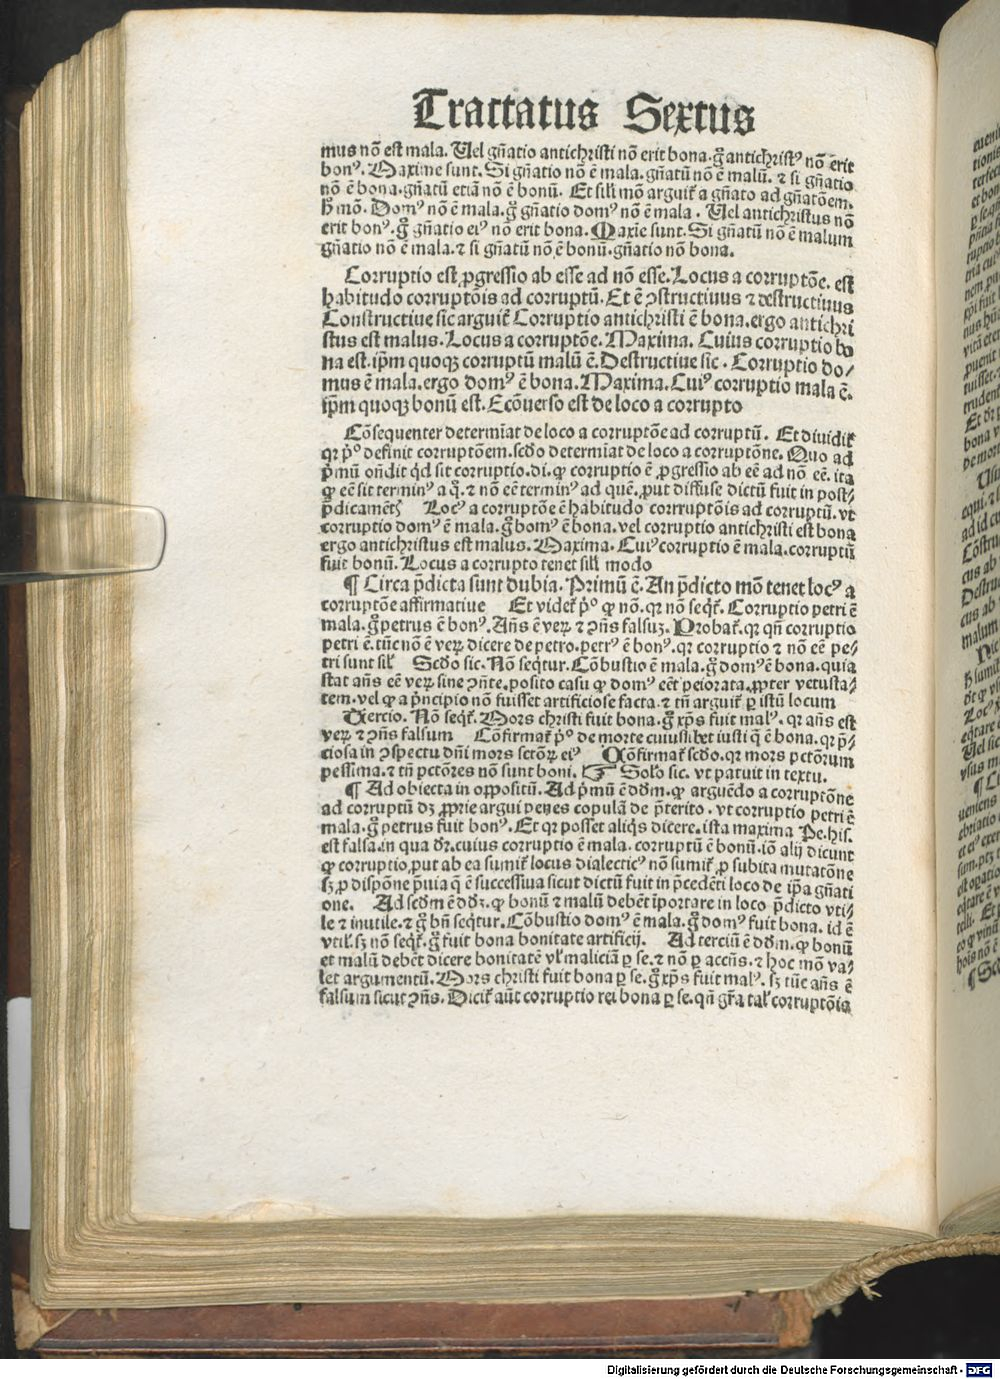 Tractatus Sextus
mus nō est mala. Uel gñatio antichristi nō erit bona. gͦ antichristꝰ nō erit
bonꝰ. Maxime sunt. Si gñatio nō ē mala. gñatū nō ē malū. ⁊ si gñatio
nō ē bona. gñatū etiā nō ē bonū. Et sili mō arguit᷑ a gñato ad gñatōem.
h̄ mō. Domꝰ nō ē mala. gͦ gñatio domꝰ nō ē mala. Uel antichristus nō
erit bonꝰ. gͦ gñatio eiꝰ nō erit bona. Maxie sunt. Si gñatū nō ē malum
gñatio nō ē mala. ⁊ si gñatū nō ē bonū. gñatio nō bona.
Corruptio est ꝓgressio ab esse ad nō esse. Locus a corruptōe. est
habitudo corruptōis ad corruptū. Et ē ꝯstructiuus ⁊ destructiuus
Constructiue sic arguit᷑ Corruptio antichristi ē bona. ergo antichri
stus est malus. Locus a corruptōe. Maxima. Cuius corruptio bo
na est. ip̄m quoqꝫ corruptū malū ē. Destructiue sic. Corruptio do/
mus ē mala. ergo domꝰ ē bona. Maxima. Cuiꝰ corruptio mala ē.
ip̄m quoqꝫ bonū est. Ecōuerso est de loco a corrupto
Cōsequenter determīat de loco a corruptōe ad corruptū. Et diuidit᷑
qꝛ pͦ definit corruptōem. scd̄o determīat de loco a corruptōne. Quo ad
pͥmū on̄dit qͥd sit corruptio. di. ꝙ corruptio ē ꝓgressio ab eē ad nō eē. ita
ꝙ eē sit terminꝰ a q̊. ⁊ nō eē terminꝰ ad quē. ꝓut diffuse dictū fuit in post/
p̄dicamētꝭ Locꝰ a corruptōe ē habitudo corruptōis ad corruptū. vt
corruptio domꝰ ē mala. gͦ domꝰ ē bona. vel corruptio antichristi est bona
ergo antichristus est malus. Maxima. Cuiꝰ corruptio ē mala. corruptū
fuit bonū. Locus a corrupto tenet sili modo
¶ Circa p̄dicta sunt dubia. Primū ē. An p̄dicto mō tenet locꝰ a
corruptōe affirmatiue Et videt᷑ pͦ ꝙ nō. qꝛ nō seqt᷑. Corruptio petri ē
mala. gͦ petrus ē bonꝰ. An̄s ē veꝝ ⁊ ꝯn̄s falsuꝫ. Probat᷑. qꝛ qn̄ corruptio
petri ē. tūc nō ē veꝝ dicere de petro. petrꝰ ē bonꝰ. qꝛ corruptio ⁊ nō eē pe/
tri sunt sil̄ Scd̄o sic. Nō seqͥtur. Cōbustio ē mala. gͦ domꝰ ē bona. quia
stat an̄s eē veꝝ sine ꝯn̄te. posito casu ꝙ domꝰ eēt peiorata. ꝓpter vetusta/
tem. vel ꝙ a pͥncipio nō fuisset artificiose facta. ⁊ tn̄ arguit᷑ ꝑ istū locum
Tercio. Nō seqt᷑. Mors christi fuit bona. gͦ xp̄s fuit malꝰ. qꝛ an̄s est
veꝝ ⁊ ꝯn̄s falsum Cōfirmat᷑ pͦ de morte cuiuslibet iusti q̄ ē bona. qꝛ p̄/
ciosa in ꝯspectu dn̄i mors sctōꝝ eiꝰ Cōfirmat᷑ scd̄o. qꝛ mors pctōrum
pessima. ⁊ tn̄ pctōres nō sunt boni. ☞ Solō sic. vt patuit in textu.
¶ Ad obiecta in oppositū. Ad pͥmū ē dd̄m. ꝙ arguēdo a corruptōne
ad corruptū dꝫ ꝓprie argui penes copulā de p̄terito. vt corruptio petri ē
mala. gͦ petrus fuit bonꝰ. Et qꝛ posset aliqͥs dicere. ista maxima Pe. his.
est falsa. in qua dr̄. cuius corruptio ē mala. corruptū ē bonū. iō alij dicunt
ꝙ corruptio ꝓut ab ea sumit᷑ locus dialecticꝰ nō sumit᷑ ꝓ subita mutatōne
sꝫ ꝓ dispōne p̄uia q̄ ē successiua sicut dictū fuit in p̄cedēti loco de ip̄a gñati
one. Ad scd̄m ē dd̄ꝫ. ꝙ bonū ⁊ malū debēt īportare in loco p̄dicto vti/
le ⁊ inutile. ⁊ gͦ bn̄ seqͥtur. Cōbustio domꝰ ē mala. gͦ domꝰ fuit bona. id ē
vtil᷑. sꝫ nō seqt᷑. gͦ fuit bona bonitate artificij. Ad terciū ē dd̄m. ꝙ bonū
et malū debēt dicere bonitatē vl᷑ maliciā ꝑ se. ⁊ nō ꝑ accn̄s. ⁊ hoc mō va/
let argumentū. Mors christi fuit bona ꝑ se. gͦ xp̄s fuit malꝰ. sꝫ tūc an̄s ē
falsum sicut ꝯn̄s. Dicit᷑ aūt corruptio rei bona ꝑ se. qn̄ gr̄a tal᷑ corruptōis
Digitalisierung gefördert durch die Deutsche Forschungsgemeinschaft - DFG